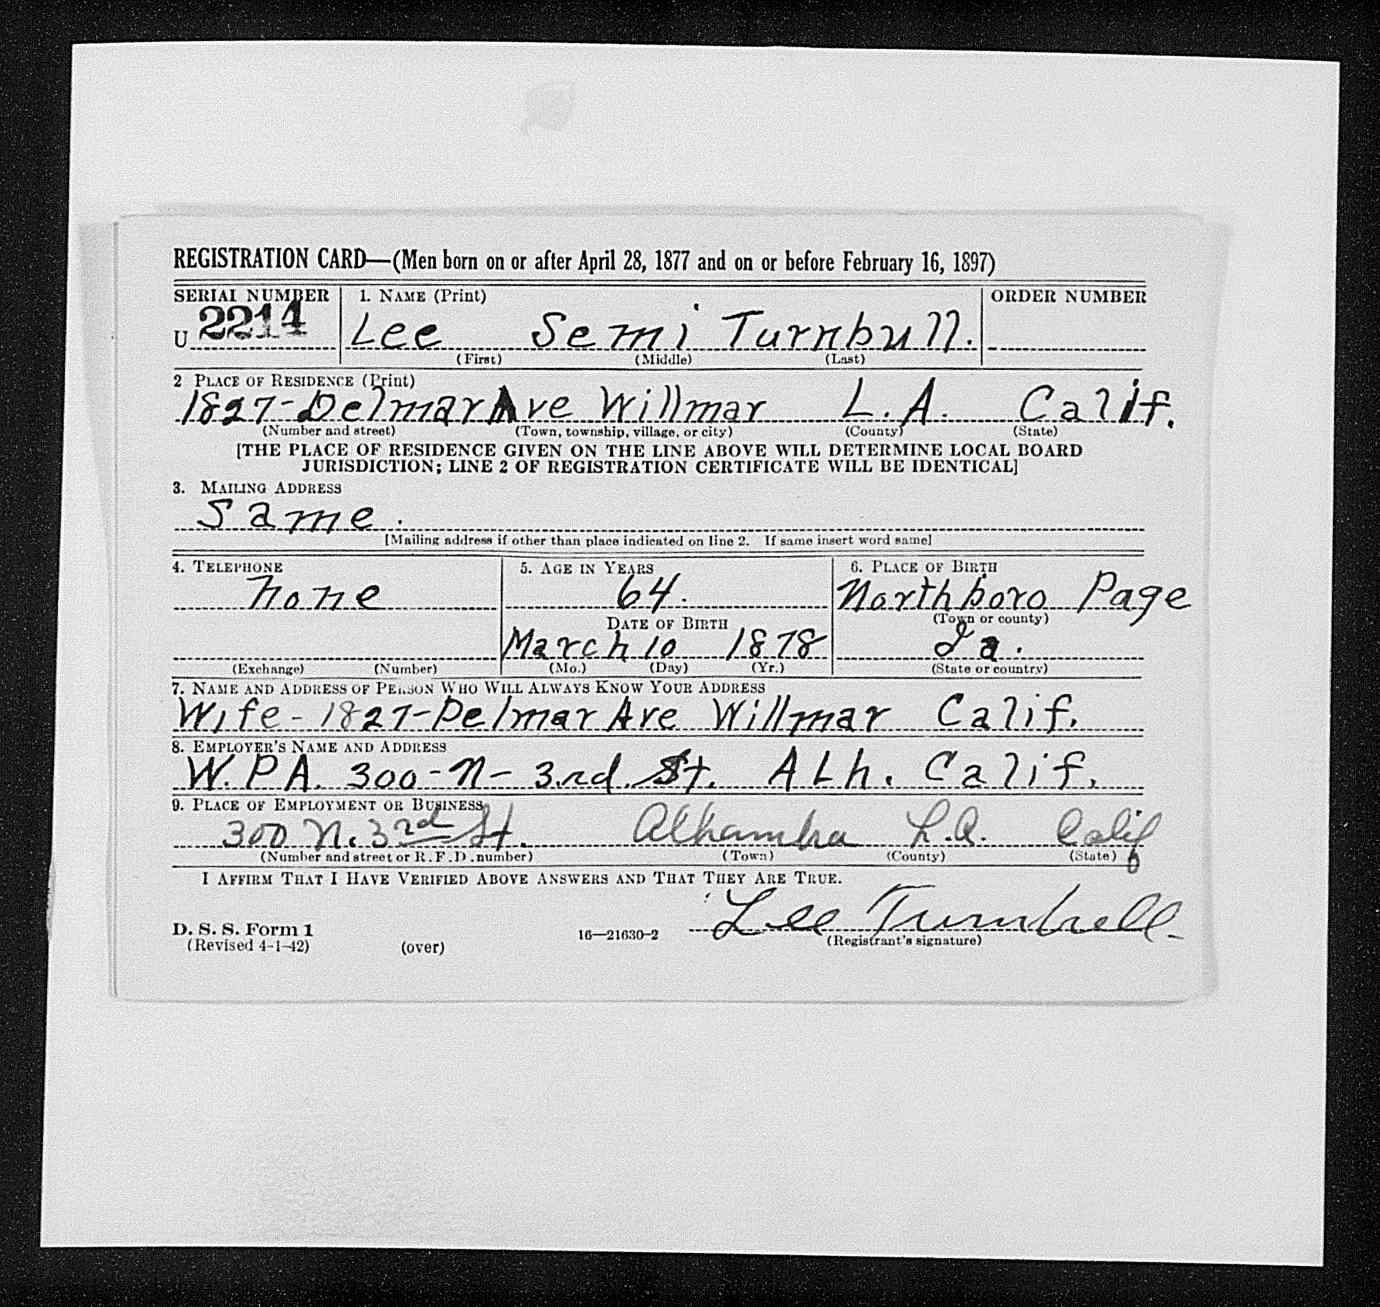 REGISTRATION CARD—(Men born on or after April 28, 1877 and on or before February 16, 1897)
SERIAL NUMBER 1. NAME (Print) ORDER NUMBER
U 2214 Lee Semi Turnbull.
(First) (Middle) (Last)
2 PLACE OF RESIDENCE (Print)
1827-Delmar Ave Willmar L.A. Calif.
(Number and street) (Town, township, village, or city) (County) (State)
[THE PLACE OF RESIDENCE GIVEN ON THE LINE ABOVE WILL DETERMINE LOCAL BOARD
JURISDICTION; LINE 2 OF REGISTRATION CERTIFICATE WILL BE IDENTICAL]
3. MAILING ADDRESS
Same.
[Mailing address if other than place indicated on line 2. If same insert word same]
4. TELEPHONE 5. AGE IN YEARS 6. PLACE OF BIRTH
None 64. Northboro Page
DATE OF BIRTH (Town or county)
March 10 1878 Ia.
(Exchange) (Number) (Mo.) (Day) (Yr.) (State or country)
7. NAME AND ADDRESS OF PERSON WHO WILL ALWAYS KNOW YOUR ADDRESS
Wife-1827-Delmar Ave Willmar Calif.
8. EMPLOYER'S NAME AND ADDRESS
W.P.A. 300-N-3.rd. St. Alh. Calif.
9. PLACE OF EMPLOYMENT OR BUSINESS
300 N. 3rd St. Alhambra L.A. Calif
(Number and street or R.F.D. number) (Town) (County) (State)
I AFFIRM THAT I HAVE VERIFIED ABOVE ANSWERS AND THAT THEY ARE TRUE.
Lee Turnbull.
D. S. S. Form 1
(Revised 4-1-42) (over) 16—21630-2 (Registrant's signature)